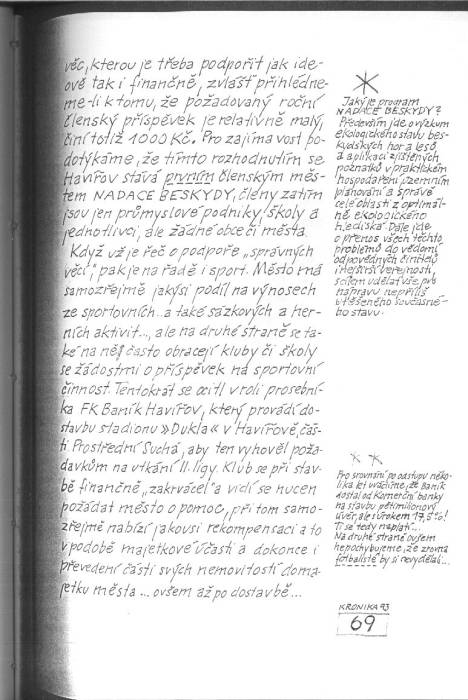 věc, kterou je třeba podpořit jak ide-
ově tak i finančně, zvlášť přihlédne-
me-li k tomu, že požadovaný roční
členský příspěvek je relativně malý,
činí totiž 1000 Kč. Pro zajímavost po-
dotýkáme, že tímto rozhodnutím se
Havířov stává prvním členským měs-
tem NADACE BESKYDY, členy zatím
jsou jen průmyslové podniky, školy a
jednotlivci, ale žádné obce či města.
Když už je řeč o podpoře „správných
věcí", pak je na řadě i sport. Město má
samozřejmě jakýsi podíl na výnosech
ze sportovních... a také sázkových a her-
ních aktivit..., ale na druhé straně se ta-
ké na něj často obracejí kluby či školy
se žádostmi o příspěvek na sportovní
činnost. Tentokrát se ocitl v roli prosební-
ka FK Baník Havířov, který provádí do-
stavbu stadionu »Dukla« v Havířově, čás-
ti Prostřední Suchá, aby ten vyhověl poža-
davkům na utkání II. ligy. Klub se při stav-
bě finančně „zakrvácel" a vidí se nucen
požádat město o pomoc, přitom samo-
zřejmě nabízí jakousi rekompensaci a to
v podobě majetkové účasti a dokonce i
převedení části svých nemovitostí do ma-
jetku města ... ovšem až po dostavbě...
Jaký je program
NADACE BESKYDY?
Především jde o výzkum
ekologického stavu bes-
kydských hor a lesů
a aplikaci zjištěných
poznatků v praktickém
hospodaření, územním
plánování a správě
celé oblasti z optimál-
ně ekologického
hlediska. Dále jde
o přenos všech těchto
problémů do vědomí
odpovědných činitelů
i nejširší veřejnosti,
s cílem udělat vše pro
nápravu nepříliš
utěšeného současné-
ho stavu.
Pro srovnání po odstupu něko-
lika let uvádíme, že Baník
dostal od Komerční banky
na stavbu pětimilionový
úvěr, ale s úrokem 17,5 %!
Ti se tedy neplatí...
Na druhé straně ovšem
nepochybujeme, že zrovna
fotbalisté by si nevydělali...
KRONIKA 93
69